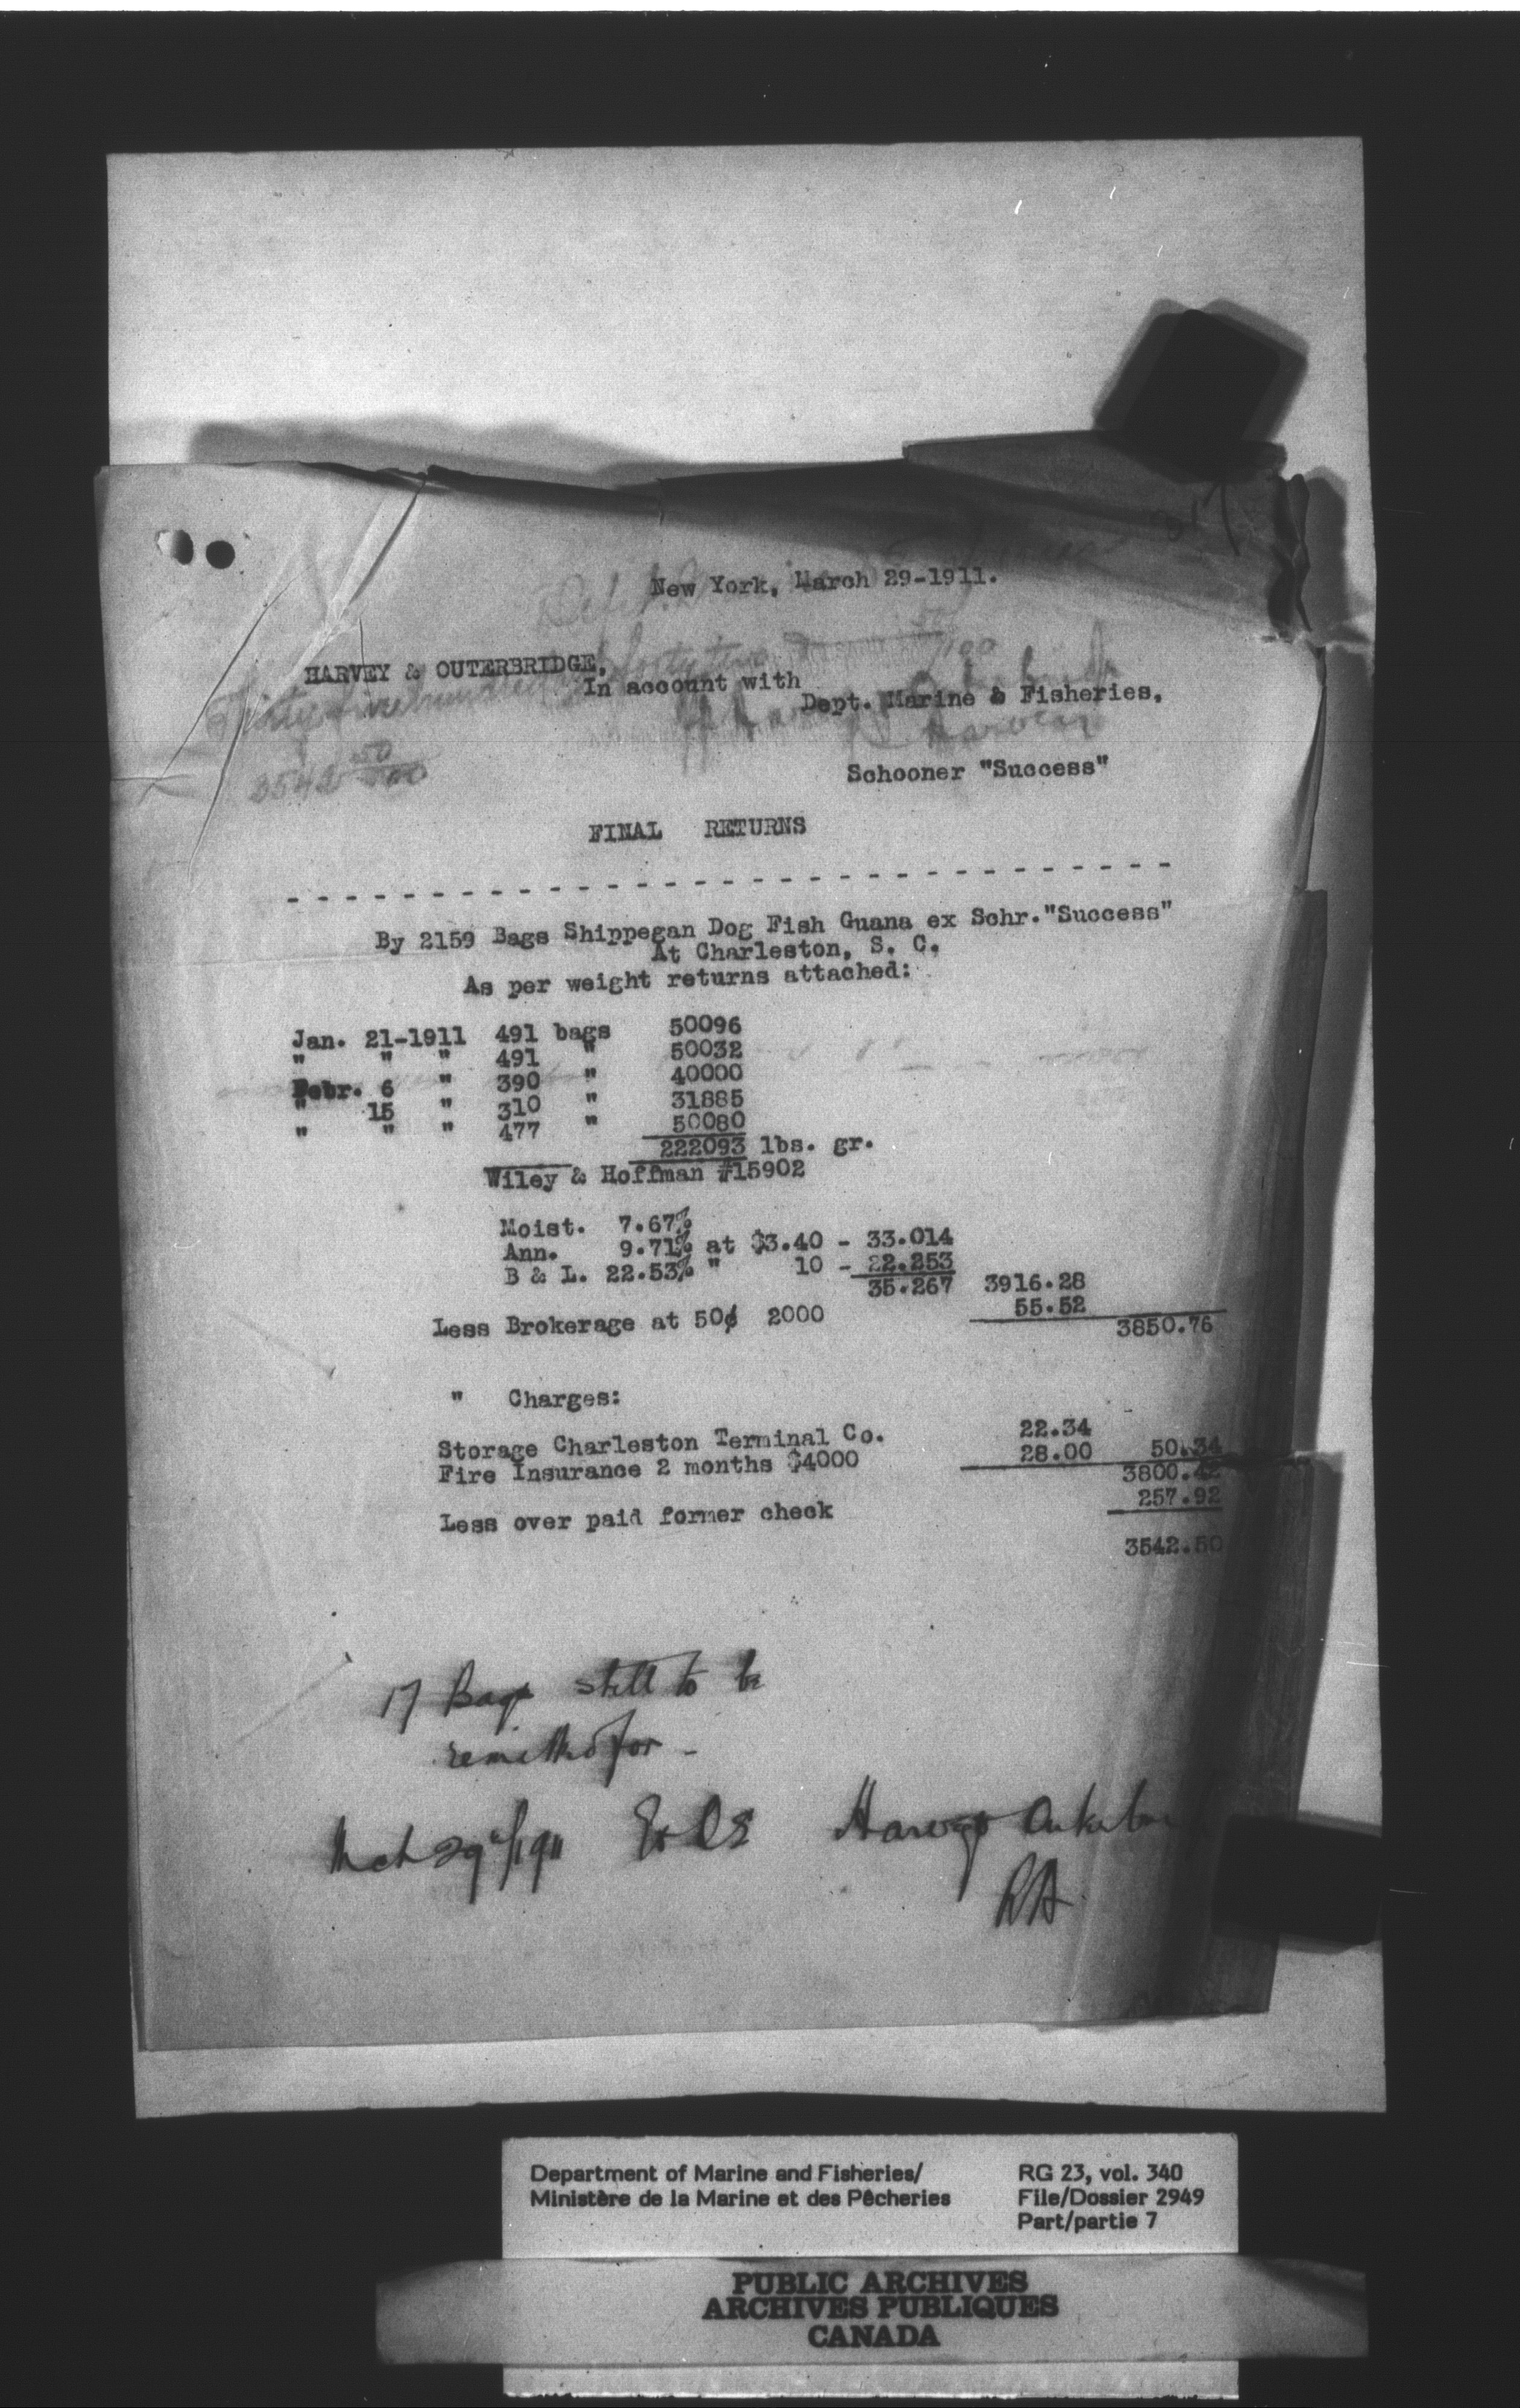 New York, March 29-1911.
HARVEY & OUTERBRIDGE,
In account with
Dept. Marine & Fisheries,
3542 50/100
Schooner "Success"
FINAL RETURNS
- - - - - - - - - - - - - - - - - - - - - - - - - - - - - -
By 2159 Bags Shippegan Dog Fish Guana ex Schr."Success"
At Charleston, S. C.
As per weight returns attached:
Jan. 21-1911 491 bags 50096
" " " 491 " 50032
Febr. 6 " 390 " 40000
" 15 " 310 " 31885
" " " 477 " 50080
222093 lbs. gr.
Wiley & Hoffman #15902
Moist. 7.67%
Ann. 9.71% at $3.40 - 33.014
B & L. 22.53% " 10 - 22.253
35.267 3916.28
Less Brokerage at 50¢ 2000 55.52
3850.76
" Charges:
Storage Charleston Terminal Co. 22.34
Fire Insurance 2 months $4000 28.00 50.34
3800.42
Less over paid former check 257.92
3542.50
17 Bags still to be
remitted for -
Mch 29th/1911 E&OE Harvey & Outerbridge
RH
Department of Marine and Fisheries/ RG 23, vol. 340
Ministère de la Marine et des Pêcheries File/Dossier 2949
Part/partie 7
PUBLIC ARCHIVES
ARCHIVES PUBLIQUES
CANADA